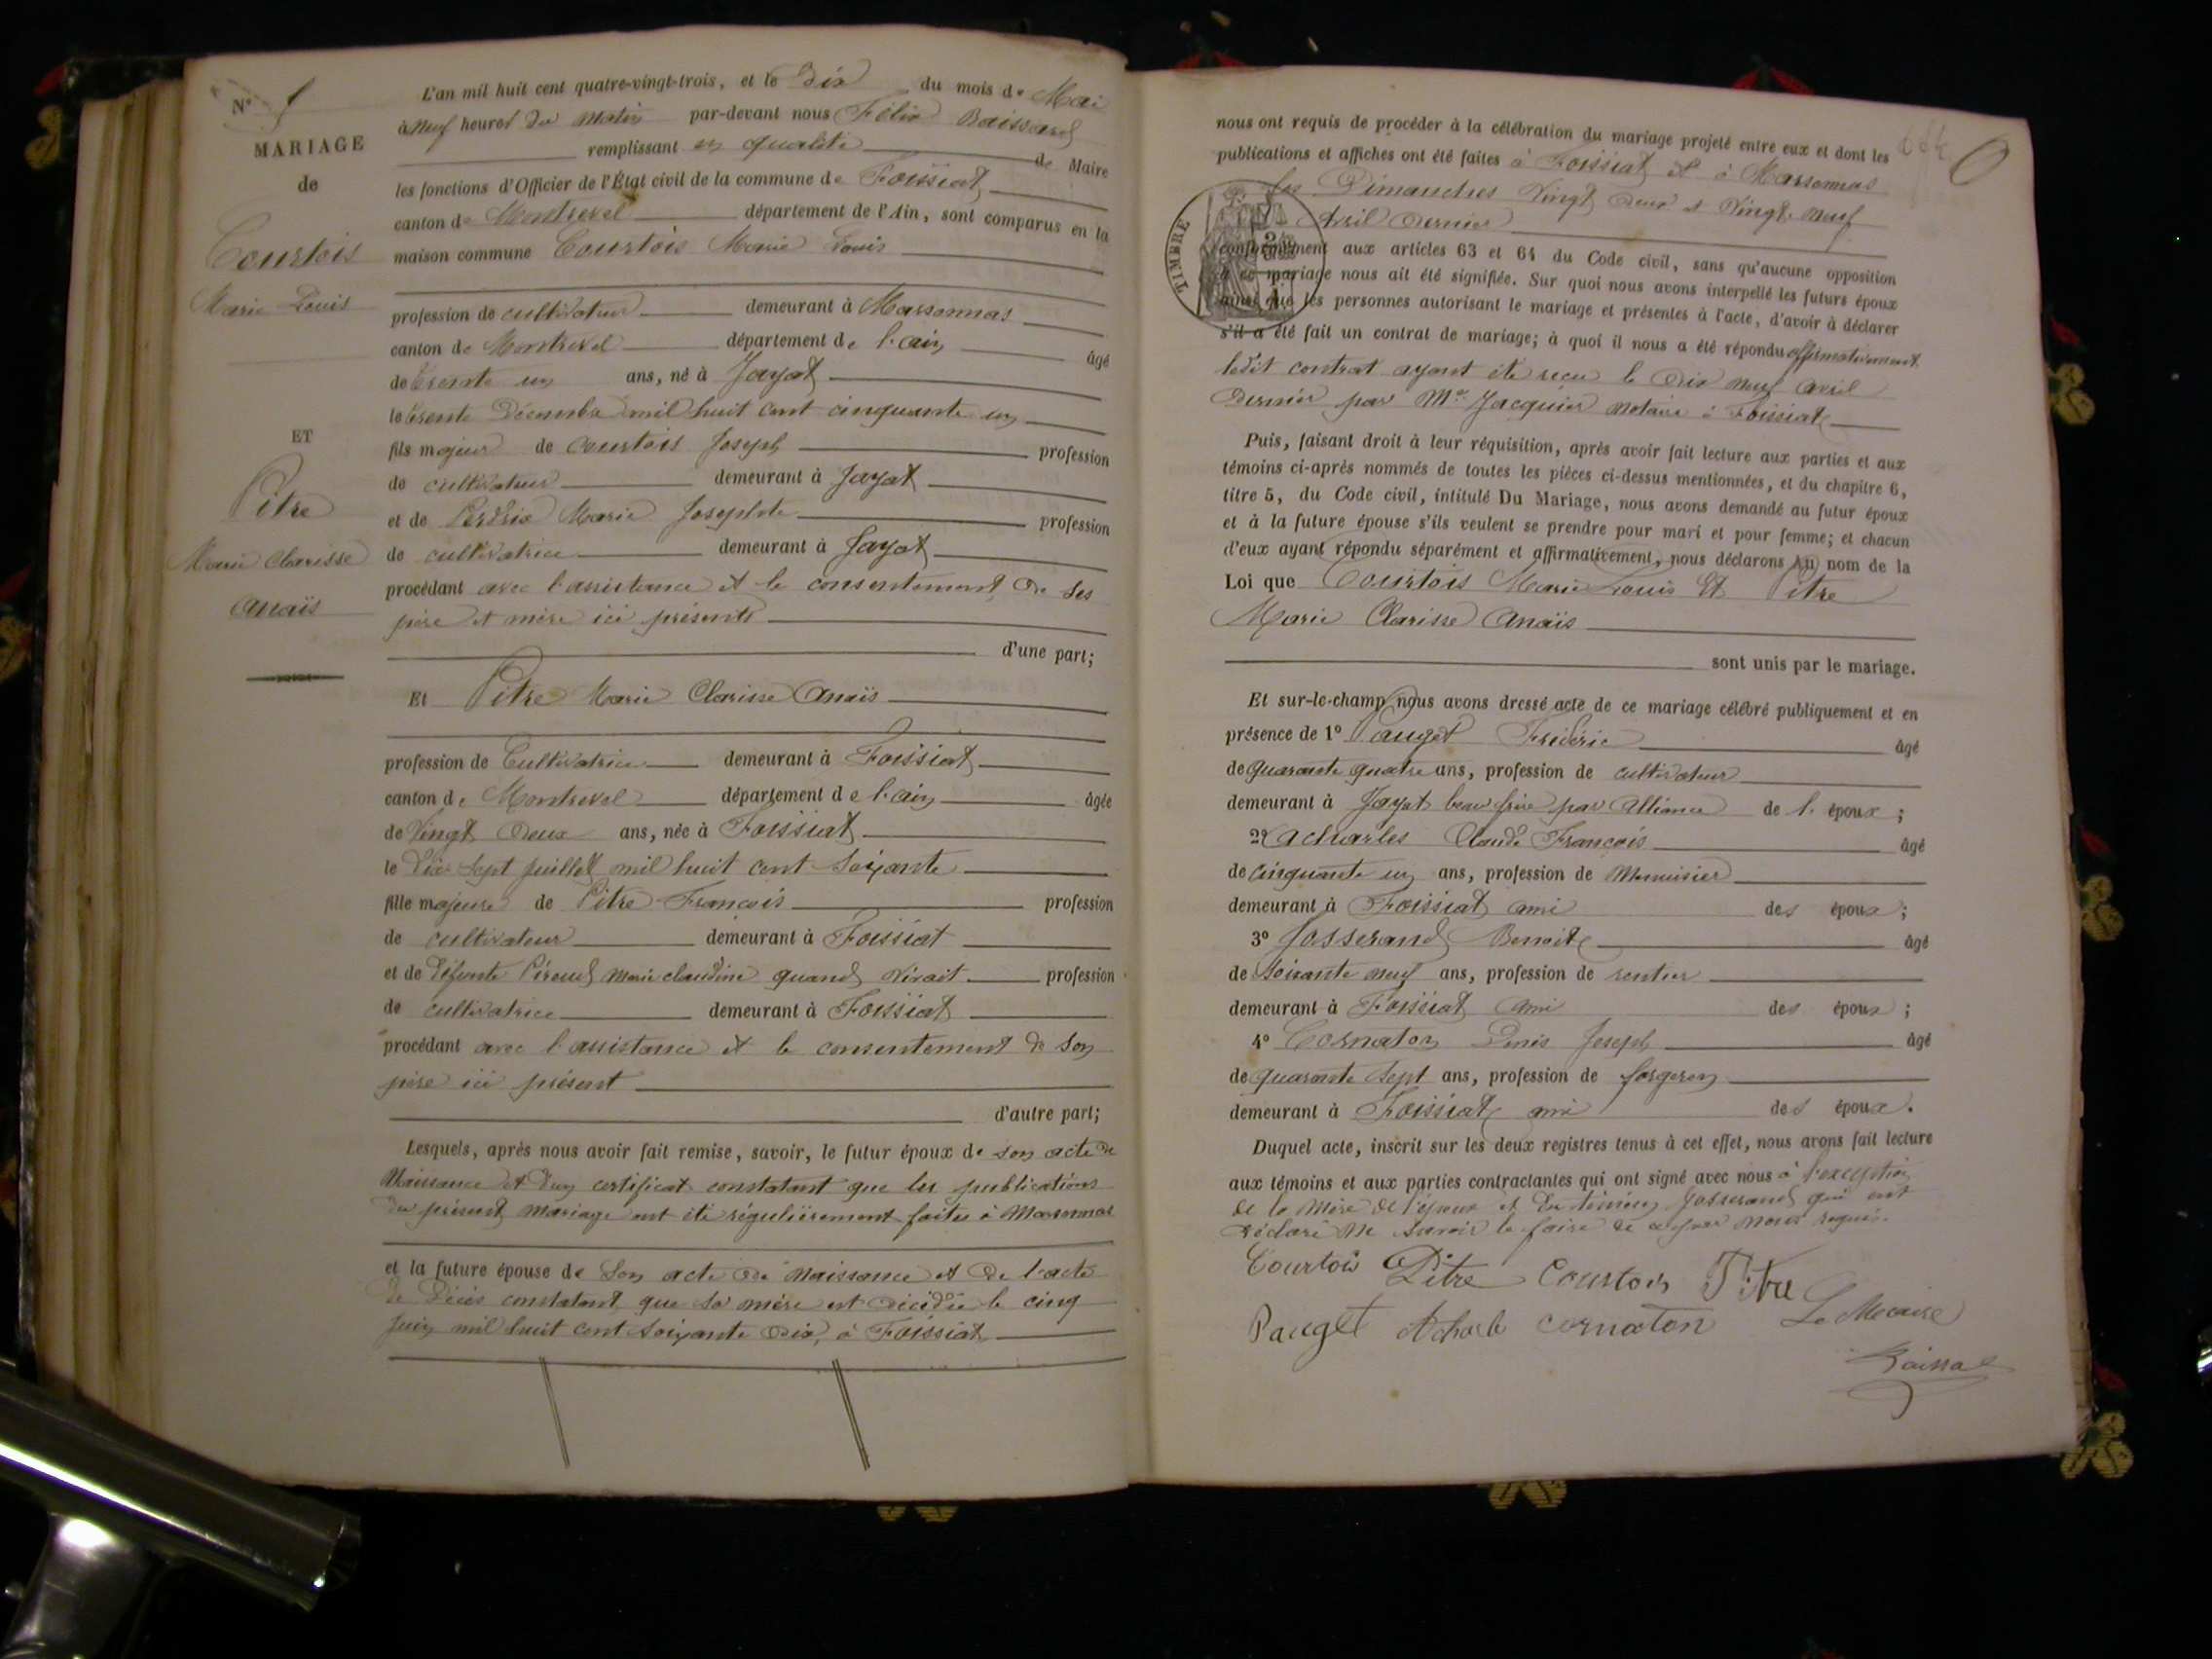 N°
MARIAGE
de
Courtois
Marie Louis
ET
Pitre
Marie Clarisse
Anaïs
L'an mil huit cent quatre-vingt-trois, et le Dix du mois de Mai
à Neuf heures du Matin par-devant nous Félix Baissard
remplissant en qualité de Maire
les fonctions d'Officier de l'État civil de la commune de Foissiat
canton de Montrevel département de l'Ain, sont comparus en la
maison commune Courtois Marie Louis
profession de cultivateur demeurant à Marsonnas
canton de Montrevel département de l'ain âgé
de trente un ans, né à Jayat
le trente Décembre mil huit cent cinquante un
fils majeur de Courtois Joseph profession
de cultivateur demeurant à Jayat
et de Perdrix Marie Josephte profession
de cultivatrice demeurant à Jayat
procédant avec l'assistance et le consentement de ses
père et mère ici présents
d'une part;
Et Pitre Marie Clarisse Anaïs
profession de Cultivatrice demeurant à Foissiat
canton de Montrevel département de l'ain âgée
de Vingt Deux ans, née à Foissiat
le Dix Sept Juillet mil huit cent Soixante
fille majeure de Pitre François profession
de cultivateur demeurant à Foissiat
et de Défunte Piroud Marie claudine quand vivait profession
de cultivatrice demeurant à Foissiat
procédant avec l'assistance et le consentement de son
père ici présent
d'autre part;
Lesquels, après nous avoir fait remise, savoir, le futur époux de son acte de
Naissance et d'un certificat constatant que les publications
du présent mariage ont été régulièrement faites à Marsonnas
et la future épouse de son acte de Naissance et de l'acte
de Décès constatant que sa mère est décédée le cinq
Juin mil huit cent soixante dix, à Foissiat
nous ont requis de procéder à la célébration du mariage projeté entre eux et dont les
publications et affiches ont été faites à Foissiat et à Marsonnas
les Dimanches Vingt deux et Vingt-neuf
Avril dernier
TIMBRE
conformément aux articles 63 et 64 du Code civil, sans qu'aucune opposition
à ce mariage nous ait été signifiée. Sur quoi nous avons interpellé les futurs époux
ainsi que les personnes autorisant le mariage et présentes à l'acte, d'avoir à déclarer
s'il a été fait un contrat de mariage; à quoi il nous a été répondu affirmativement
ledit contrat ayant été reçu le Dix neuf avril
Dernier par Me Jacquier notaire à Foissiat
Puis, faisant droit à leur réquisition, après avoir fait lecture aux parties et aux
témoins ci-après nommés de toutes les pièces ci-dessus mentionnées, et du chapitre 6,
titre 5, du Code civil, intitulé Du Mariage, nous avons demandé au futur époux
et à la future épouse s'ils veulent se prendre pour mari et pour femme; et chacun
d'eux ayant répondu séparément et affirmativement, nous déclarons au nom de la
Loi que Courtois Marie Louis Et Pitre
Marie Clarisse Anaïs
sont unis par le mariage.
Et sur-le-champ nous avons dressé acte de ce mariage célébré publiquement et en
présence de 1° Pauget Frédéric âgé
de quarante quatre ans, profession de cultivateur
demeurant à Jayat beau frère par alliance de l' époux ;
2° acharles Claude François âgé
de cinquante un ans, profession de Menuisier
demeurant à Foissiat ami des époux ;
3° Josserand Benoite âgé
de soixante neuf ans, profession de rentier
demeurant à Foissiat ami des époux ;
4° Cornaton Denis Joseph âgé
de quarante sept ans, profession de forgeron
demeurant à Foissiat ami des époux.
Duquel acte, inscrit sur les deux registres tenus à cet effet, nous avons fait lecture
aux témoins et aux parties contractantes qui ont signé avec nous à l'exception
de la Mère de l'époux et du témoin Josserand qui ont
déclaré ne savoir le faire de ce par nous requis.
Courtois Pitre Courtois Pitre
Pauget Acharle cornaton Le Maire
Baissard